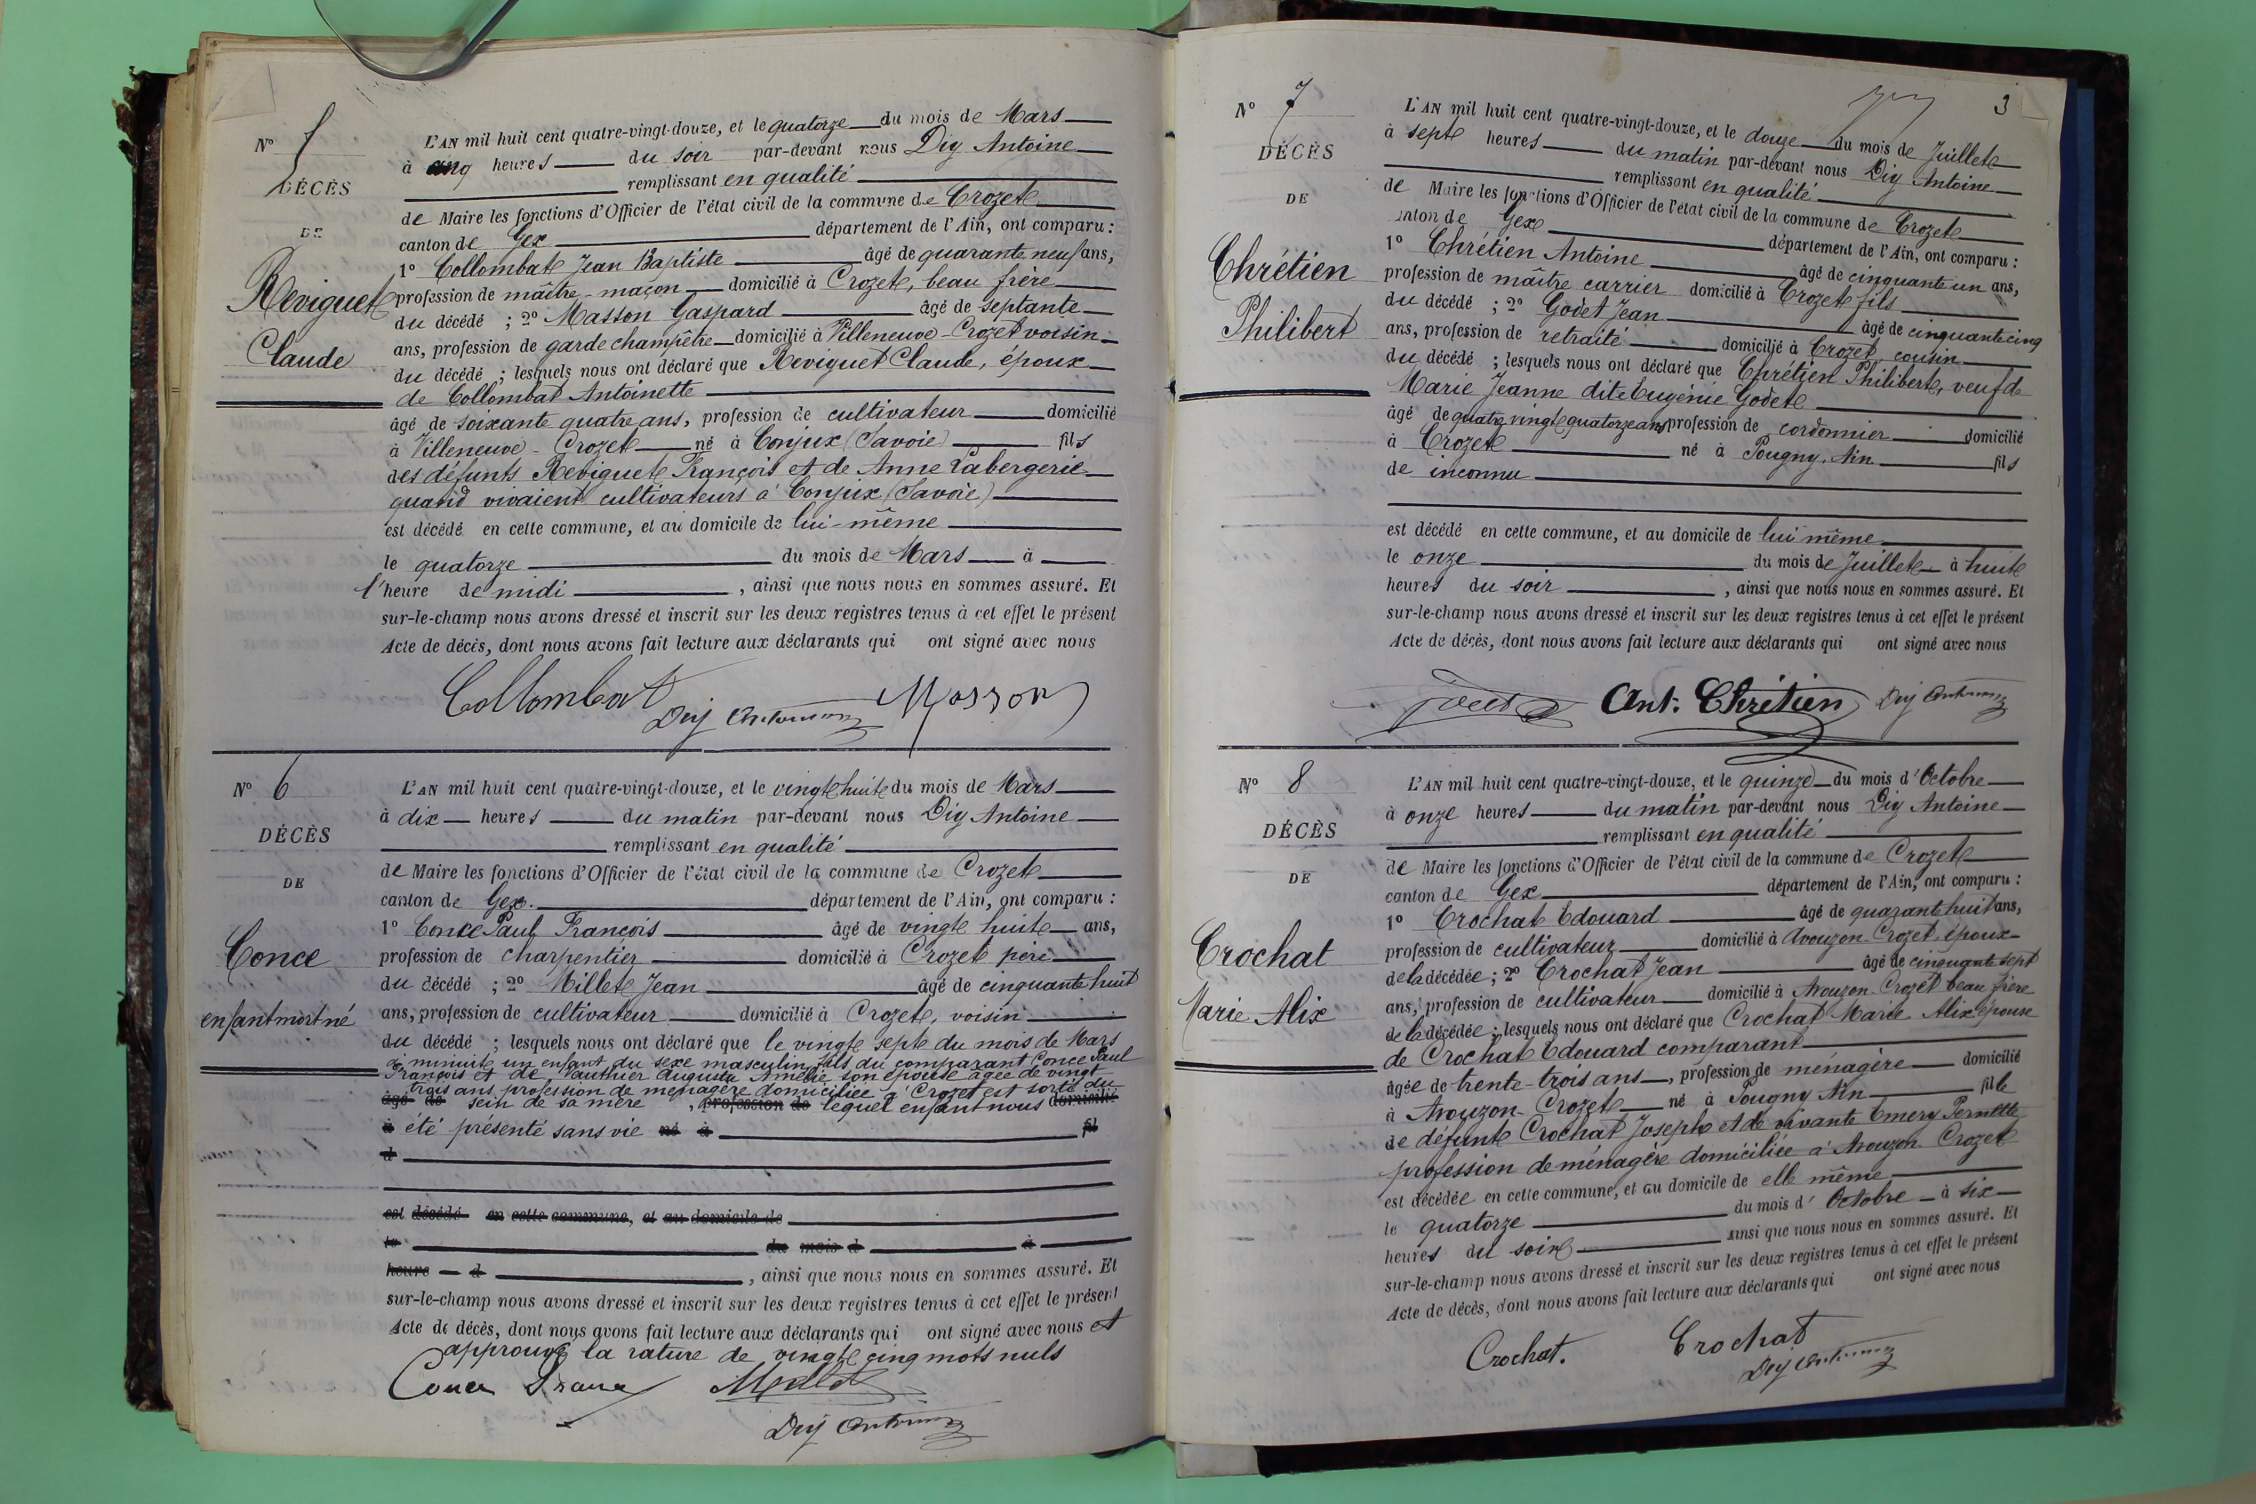 N° 5
DÉCÈS
DE
Reviguet
Claude
L'AN mil huit cent quatre-vingt-douze, et le quatorze du mois de Mars
à cinq heures du soir par-devant nous Dig Antoine
remplissant en qualité
de Maire les fonctions d'Officier de l'état civil de la commune de Crozet
canton de Gex département de l'Ain, ont comparu :
1° Collombat Jean Baptiste âgé de quarante neuf ans,
profession de maître-maçon domicilié à Crozet, beau frère
du décédé ; 2° Masson Gaspard âgé de septante
ans, profession de garde champêtre domicilié à Villeneuve-Crozet voisin
du décédé ; lesquels nous ont déclaré que Reviguet Claude, époux
de Collombat Antoinette
âgé de soixante quatre ans, profession de cultivateur domicilié
à Villeneuve-Crozet né à Conjux (Savoie) fils
des défunts Reviguet François et de Anne Labergerie
quand vivaient cultivateurs à Conjux (Savoie)
est décédé en cette commune, et au domicile de lui-même
le quatorze du mois de Mars à
l'heure de midi, ainsi que nous nous en sommes assuré. Et
sur-le-champ nous avons dressé et inscrit sur les deux registres tenus à cet effet le présent
Acte de décès, dont nous avons fait lecture aux déclarants qui ont signé avec nous
Collombat Dig Antoine Masson
N° 6
DÉCÈS
DE
Conce
enfant mort né
L'AN mil huit cent quatre-vingt-douze, et le vingt huit du mois de Mars
à dix heures du matin par-devant nous Dig Antoine
remplissant en qualité
de Maire les fonctions d'Officier de l'état civil de la commune de Crozet
canton de Gex. département de l'Ain, ont comparu :
1° Conce Paul François âgé de vingt huit ans,
profession de charpentier domicilié à Crozet père
du décédé ; 2° Millet Jean âgé de cinquante huit
ans, profession de cultivateur domicilié à Crozet, voisin
du décédé ; lesquels nous ont déclaré que le vingt sept du mois de Mars
à minuit un enfant du sexe masculin, fils du comparant Conce Paul
François et de Vauthier Augusta Amélie son épouse âgée de vingt
trois ans profession de ménagère domiciliée à Crozet est sorti du
âgé de sein de sa mère, profession de lequel enfant nous domicilié
a été présenté sans vie né à fil
d
est décédé en cette commune, et au domicile de
le du mois d à
heure d, ainsi que nous nous en sommes assuré. Et
sur-le-champ nous avons dressé et inscrit sur les deux registres tenus à cet effet le présent
Acte de décès, dont nous avons fait lecture aux déclarants qui ont signé avec nous et
approuvé la rature de vingt cinq mots nuls
Conce Millet
Dig Antoine
3
N° 7
DÉCÈS
DE
Chrétien
Philibert
L'AN mil huit cent quatre-vingt-douze, et le douze du mois de Juillet
à sept heures du matin par-devant nous Dig Antoine
remplissant en qualité
de Maire les fonctions d'Officier de l'état civil de la commune de Crozet
canton de Gex département de l'Ain, ont comparu :
1° Chrétien Antoine âgé de cinquante un ans,
profession de maître carrier domicilié à Crozet fils
du décédé ; 2° Godet Jean âgé de cinquante cinq
ans, profession de retraité domicilié à Crozet, cousin
du décédé ; lesquels nous ont déclaré que Chrétien Philibert, veuf de
Marie Jeanne dite Eugénie Godet
âgé de quatre vingt quatorze ans profession de cordonnier domicilié
à Crozet né à Pougny, Ain fils
de inconnu
est décédé en cette commune, et au domicile de lui même
le onze du mois de Juillet à huit
heures du soir, ainsi que nous nous en sommes assuré. Et
sur-le-champ nous avons dressé et inscrit sur les deux registres tenus à cet effet le présent
Acte de décès, dont nous avons fait lecture aux déclarants qui ont signé avec nous
Godet Ant. Chrétien Dig Antoine
N° 8
DÉCÈS
DE
Crochat
Marie Alix
L'AN mil huit cent quatre-vingt-douze, et le quinze du mois d'Octobre
à onze heures du matin par-devant nous Dig Antoine
remplissant en qualité
de Maire les fonctions d'Officier de l'état civil de la commune de Crozet
canton de Gex département de l'Ain, ont comparu :
1° Crochat Edouard âgé de quarante huit ans,
profession de cultivateur domicilié à Avouzon-Crozet, époux
de la décédée ; 2° Crochat Jean âgé de cinquante sept
ans, profession de cultivateur domicilié à Avouzon-Crozet beau frère
de la décédée ; lesquels nous ont déclaré que Crochat Marie Alix épouse
de Crochat Edouard comparant
âgée de trente-trois ans, profession de ménagère domicilié
à Avouzon-Crozet né à Pougny Ain fille
de défunt Crochat Joseph et de vivante Emery Pernette
profession de ménagère domiciliée à Avouzon-Crozet
est décédée en cette commune, et au domicile de elle même
le quatorze du mois d'Octobre à six
heures du soir ainsi que nous nous en sommes assuré. Et
sur-le-champ nous avons dressé et inscrit sur les deux registres tenus à cet effet le présent
Acte de décès, dont nous avons fait lecture aux déclarants qui ont signé avec nous
Crochat. Crochat
Dig Antoine